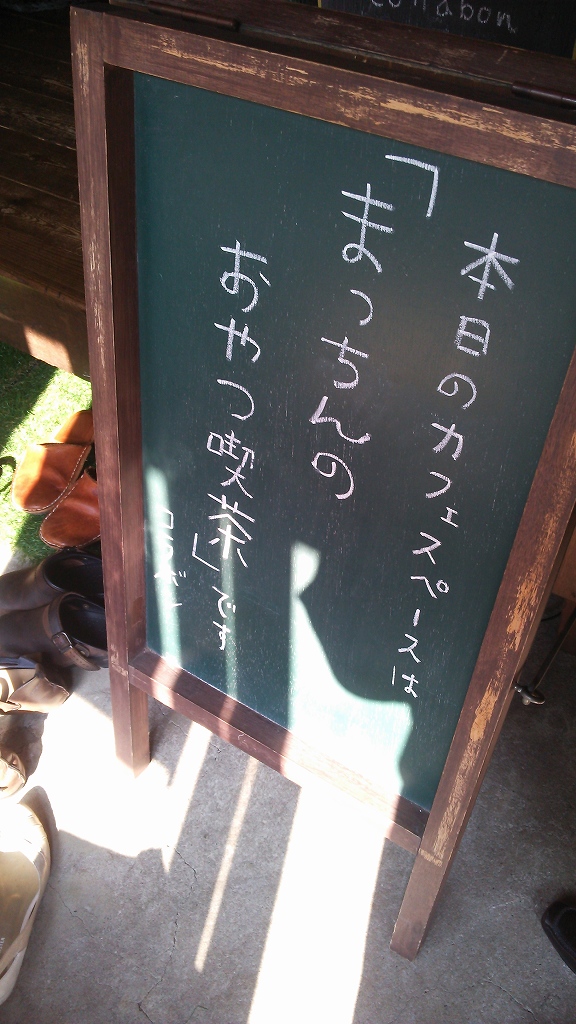 collabon
本日のカフェスペースは
「まっちんの
おやつ喫茶」です
コラボン